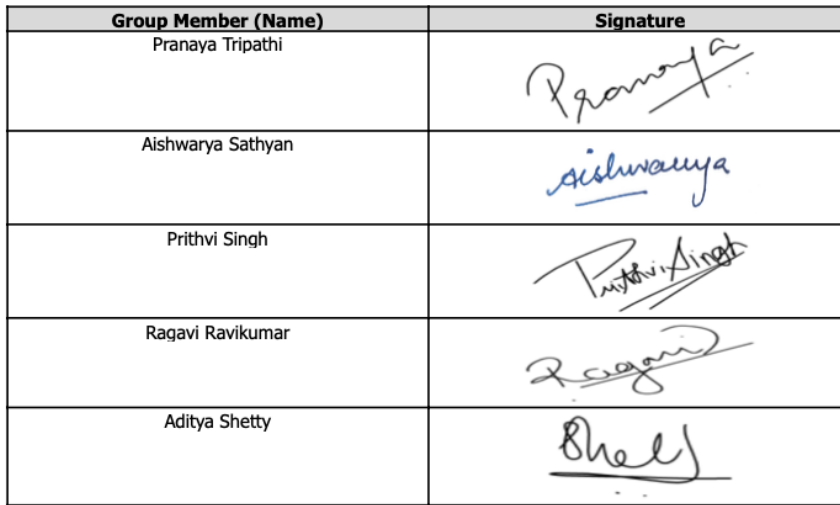 Group Member (Name) Signature
Pranaya Tripathi Pranaya
Aishwarya Sathyan Aishwarya
Prithvi Singh Prithvi Singh
Ragavi Ravikumar Ragavi
Aditya Shetty